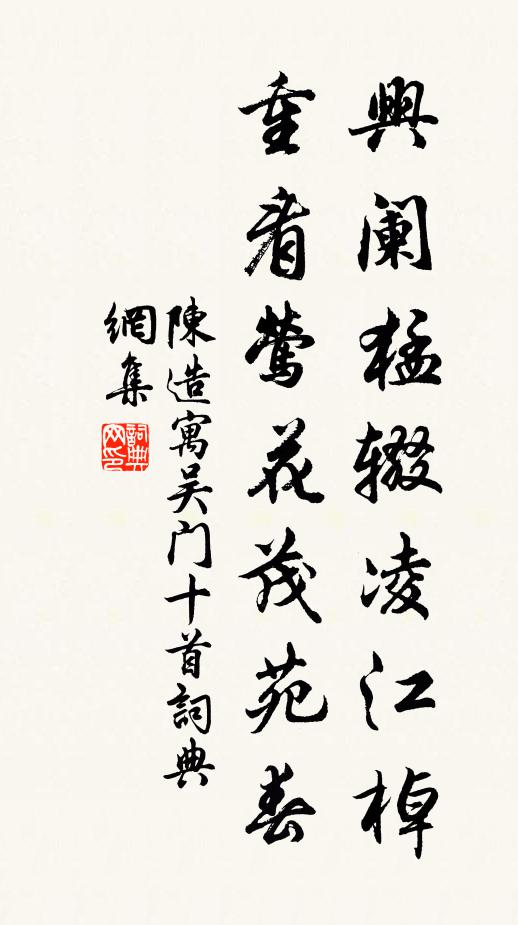 興阑猛辍凌江棹
重看鶯花茂苑春
陳造寓吴门十首詞典
網集
詞典
网印